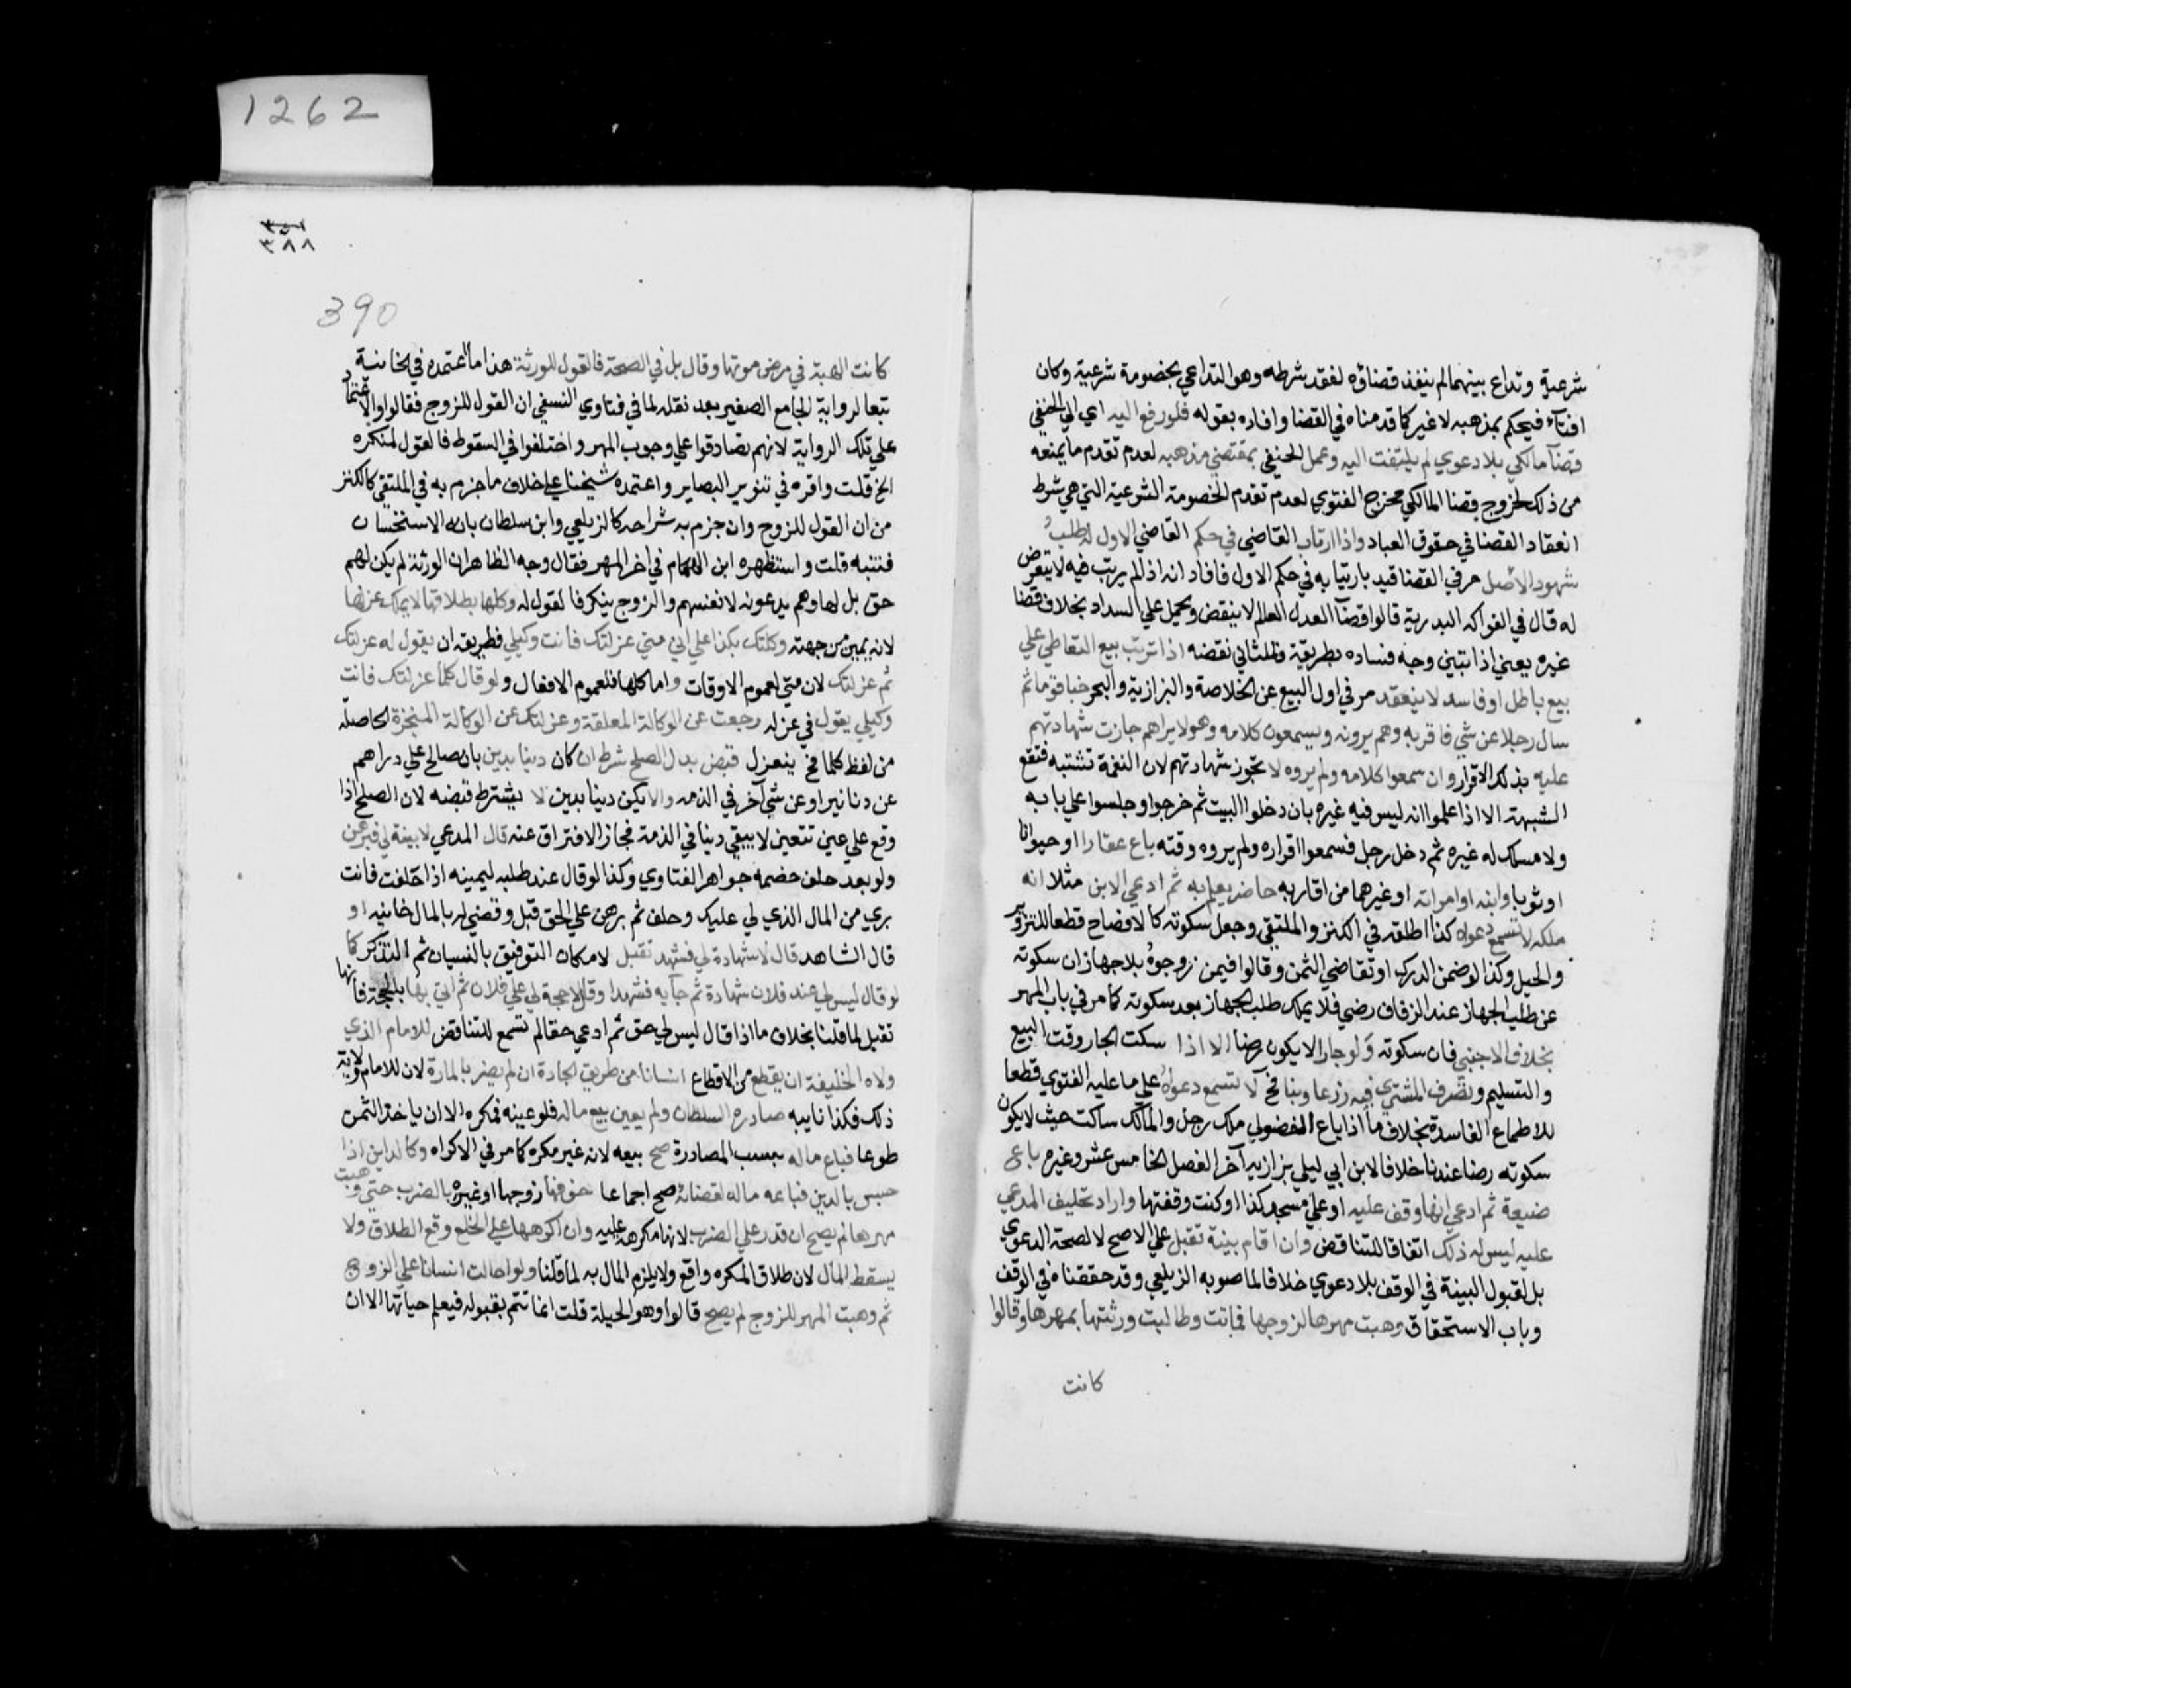 شرعية وتداع بينهما لم ينفذ قضاؤه لفقد شرطه وهو التداعي بخصومة شرعية وكان
افتآء فيحكم بمذهبه لا غير كما قدمناه في القضا وافاده بقوله فلو رفع اليه اي الي الحنفي
قضآ مالكي بلا دعوي لم يلتفت اليه وعمل الحنفي بمقتضي مذهبه لعدم تقدم ما يمنعه
من ذلك لخروج قضا المالكي مخرج الفتوي لعدم تقدم الخصومة الشرعية التي هي شرط
انعقاد القضا في حقوق العباد واذا ارتاب القاضي في حكم القاضي الاول له طلب
شهود الاصل مر في القضا قيد بارتيابه في حكم الاول فافاد انه اذا لم يرتب فيه لا يتعرض
له قال في الفواكه البدرية قالوا قضآ العدل العالم لا ينقض ويحمل علي السداد بخلاف قضا
غيره يعني اذا تبين وجه فساده بطريقة فللثاني نقضه اذا ترتب بيع التعاطي علي
بيع باطل او فاسد لا ينعقد مر في اول البيع عن الخلاصة والبزازية والبحر خبا قوما ثم
سال رجلا عن شي فاقر به وهم يرونه ويسمعون كلامه وهو لا يراهم جازت شهادتهم
عليه بذلك الاقرار وان سمعوا كلامه ولم يروه لا تجوز شهادتهم لان النغمة تشتبه فتقع
الشبهة الا اذا علموا انه ليس فيه غيره بان دخلوا البيت ثم خرجوا وجلسوا علي بابه
ولا مسلك له غيره ثم دخل رجل فسمعوا اقراره ولم يروه وقته باع عقارا او حيوانا
او ثوبا وابنه او امراته او غيرهما من اقاربه حاضر يعلم به ثم ادعي الابن مثلا انه
ملكه لا تسمع دعواه كذا اطلقه في الكنز والملتقي وجعل سكوته كالافصاح قطعا للتزوير
والحيل وكذا لو ضمن الدرك او تقاضي الثمن وقالوا فيمن زوجوه بلا جهاز ان سكوته
عن طلب الجهاز عند الزفاف رضي فلا يملك طلب الجهاز بعد سكوته كما مر في باب المهر
بخلاف الاجنبي فان سكوته ولو جارا لا يكون رضا الا اذا سكت الجار وقت البيع
والتسليم وتصرف المشتري فيه زرعا وبنا فح لا تسمع دعواه علي ما عليه الفتوي قطعا
للاطماع الفاسدة بخلاف ما اذا باع الفضولي ملك رجل والمالك ساكت حيث لا يكون
سكوته رضا عندنا خلافا لابن ابي ليلي بزازيه آخر الفصل الخامس عشر وغيره باع
ضيعة ثم ادعي انها وقف عليه او علي مسجد كذا او كنت وقفتها واراد تحليف المدعي
عليه ليس له ذلك اتفاقا للتناقض وان اقام بينة تقبل علي الاصح لا لصحة الدعوي
بل لقبول البينة في الوقف بلا دعوي خلافا لما صوبه الزيلعي وقد حققناه في الوقف
وباب الاستحقاق وهبت مهرها لزوجها فماتت وطالبت ورثتها بمهرها وقالوا
كانت
1262
٣٨٨
390
كانت الهبة في مرض موتها وقال بل في الصحة فالقول للورثة هذا ما اعتمده في الخانية
تبعا لرواية الجامع الصغير بعد نقله لما في فتاوي النسفي ان القول للزوج فقالوا والاعتماد
علي تلك الرواية لانهم تصادقوا علي وجوب المهر واختلفوا في السقوط فالقول لمنكره
الخ قلت واقره في تنوير البصاير واعتمده شيخنا علي خلاف ما جزم به في الملتقي كالكنز
من ان القول للزوج وان جزم به شراحه كالزيلعي وابن سلطان بانه الاستحسان
فتنبه قلت واستظهره ابن الهمام في اخر المهر فقال وجه الظاهر ان الورثة لم يكن لهم
حق بل لها وهم يدعونه لانفسهم والزوج ينكر فالقول له وكلها بطلاقها لا يملك عزلها
لانه يمين من جهته وكلتك بكذا علي اني متي عزلتك فانت وكيلي فطريقه ان يقول له عزلتك
ثم عزلتك لان متي لعموم الاوقات واما كلها فلعموم الافعال ولو قال كلما عزلتك فانت
وكيلي يقول في عزله رجعت عن الوكالة المعلقة وعزلتك عن الوكالة المنجزة الحاصلة
من لفظ كلما فح ينعزل قبض بدل الصلح شرط ان كان دينا بدين بان صالح علي دراهم
عن دنانير او عن شي آخر في الذمه والا يكن دينا بدين لا يشترط قبضه لان الصلح اذا
وقع علي عين تتعين لا يبقي دينا في الذمة فجاز الافتراق عنه قال المدعي لا بينة لي فبرهن
ولو بعد حلف خصمه جواهر الفتاوي وكذا لو قال عند طلبه ليمينه اذا حلفت فانت
بري من المال الذي لي عليك وحلف ثم برهن علي الحق قبل وقضي له بالمال خانيه او
قال الشاهد قال لا شهادة لي فشهد تقبل لامكان التوفيق بالنسيان ثم التذكر كما
لو قال ليس لي عند فلان شهادة ثم جآ به فشهدا وقال لا حجة لي علي فلان ثم اتي بها بالحجة فانها
تقبل لما قلنا بخلاف ما اذا قال ليس لي حق ثم ادعي حقا لم تسمع للتناقض للامام الذي
ولاه الخليفة ان يقطع من الاقطاع انسانا من طريق الجادة ان لم يضر بالمارة لان للامام ولاية
ذلك فكذا نايبه صادره السلطان ولم يعين بيع ماله فلو عينه فمكره الا ان ياخذ الثمن
طوعا فباع ماله بسبب المصادرة صح بيعه لانه غير مكره كما مر في الاكراه وكالداين اذا
حبس بالدين فباعه ماله لقضائه صح اجماعا خوفها زوجها او غيره بالضرب حتي وهبت
مهرها لم يصح ان قدر علي الضرب لانها مكرهة عليه وان اكرهها علي الخلع وقع الطلاق ولا
يسقط المال لان طلاق المكره واقع ولا يلزم المال به لما قلنا ولو احالت انسانا علي الزوج
ثم وهبت المهر للزوج لم يصح قالوا وهو الحيلة قلت انما تتم بقبوله فيعلم حياتها الا ان